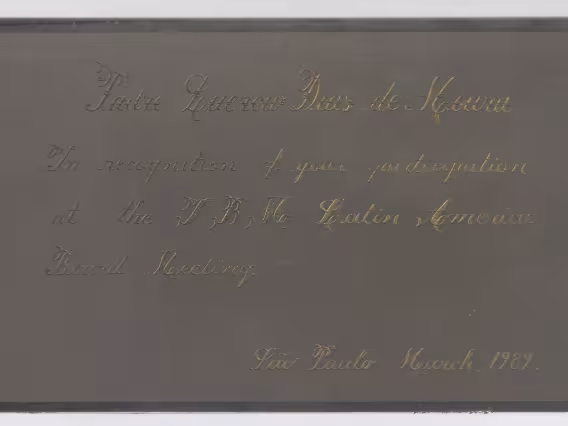 Dias de Moura
In recognition of your participation
at the I.B.M. Latin America
Board Meeting
São Paulo March, 1989.